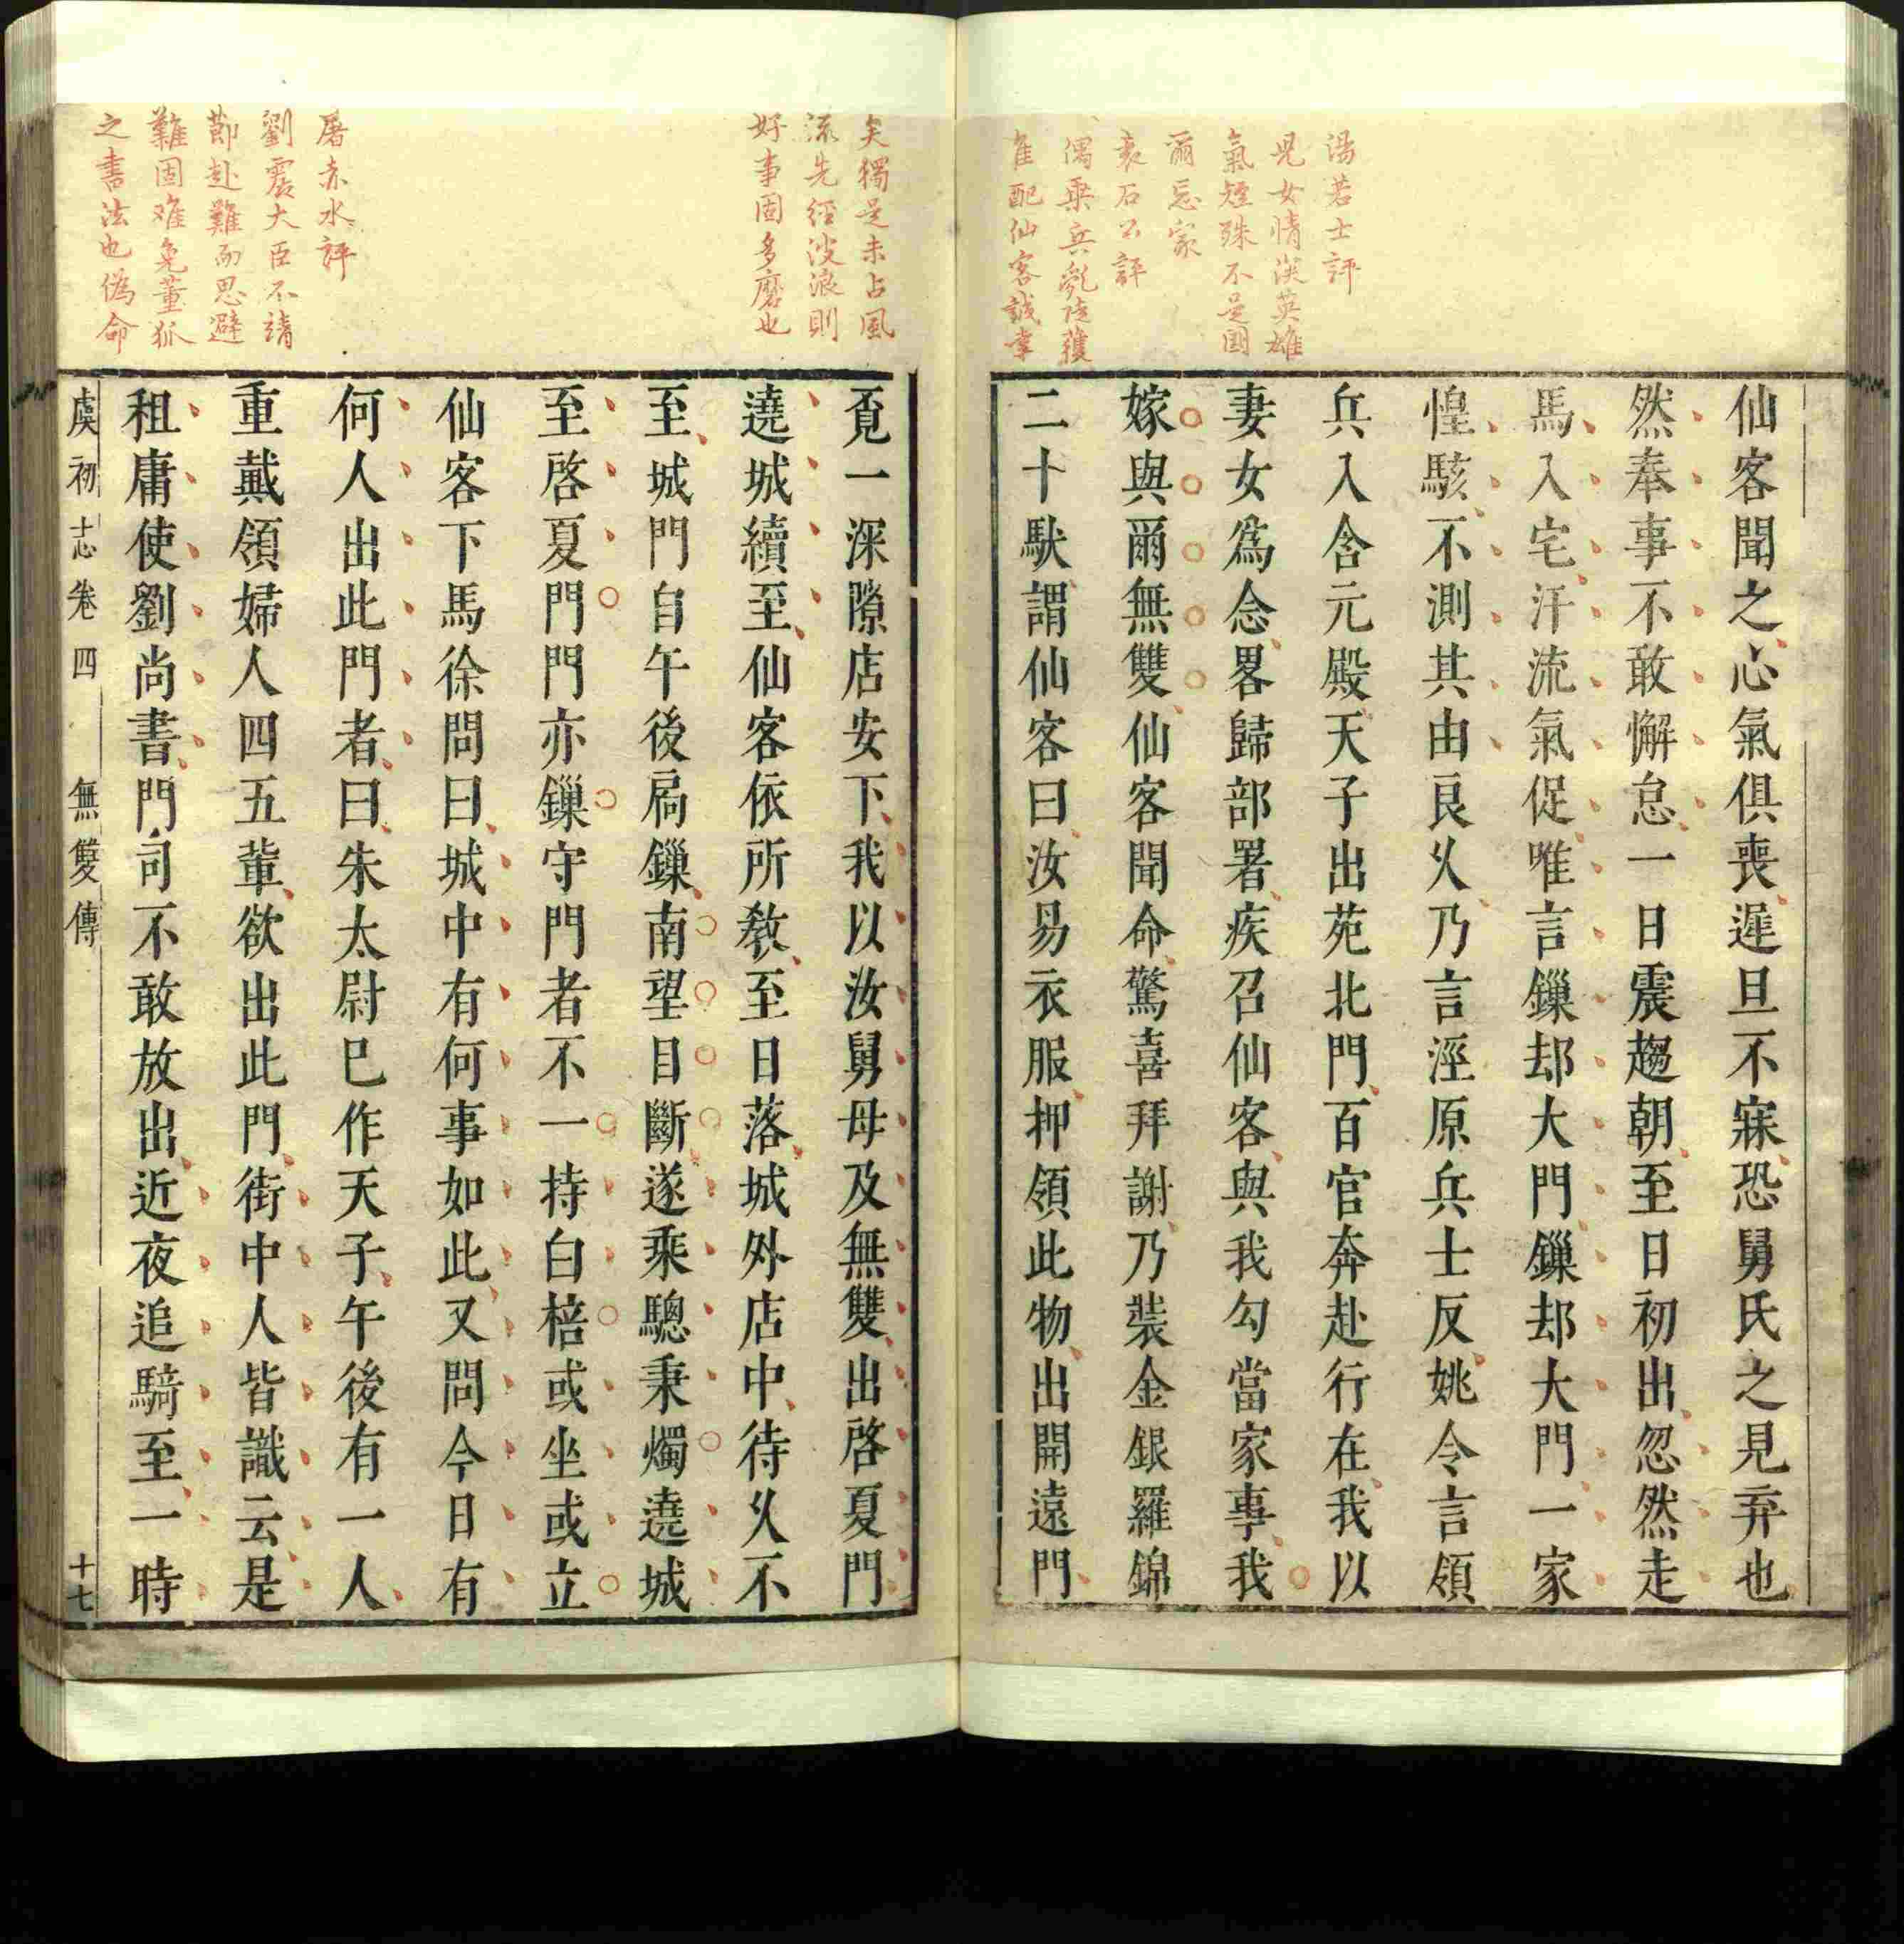 湯若士評
兒女情深英雄
氣短殊不是國
爾忘家
袁石公評
偶乘兵亂遂獲
隹配仙客誠幸
仙客聞之心氣俱喪遲旦不寐恐舅氏之見弃也
然奉事不敢懈怠一日震趨朝至日初出忽然走
馬入宅汗流氣促唯言鏁却大門鏁却大門一家
惶駭不測其由良乆乃言涇原兵士反姚令言領
兵入含元殿天子出苑北門百官奔赴行在我以
妻女爲念畧歸部署疾召仙客與我勾當家事我
嫁與爾無雙仙客聞命驚喜拜謝乃裝金銀羅錦
二十馱謂仙客曰汝易衣服押領此物出開遠門
矣獨是未占風
流先經波浪則
好事固多磨也
屠赤水評
劉震大臣不靖
節赴難而思避
難固难免董狐
之書法也偽命
覔一深隙店安下我以汝舅母及無雙出啓夏門
遶城續至仙客依所敎至日落城外店中待乆不
至城門自午後扃鏁南望目斷遂乘驄秉燭遶城
至啓夏門門亦鏁守門者不一持白棓或坐或立
仙客下馬徐問曰城中有何事如此又問今日有
何人出此門者曰朱太尉巳作天子午後有一人
重戴領婦人四五輩欲出此門街中人皆識云是
租庸使劉尚書門司不敢放出近夜追騎至一時
虞初志卷四 無雙傳 十七